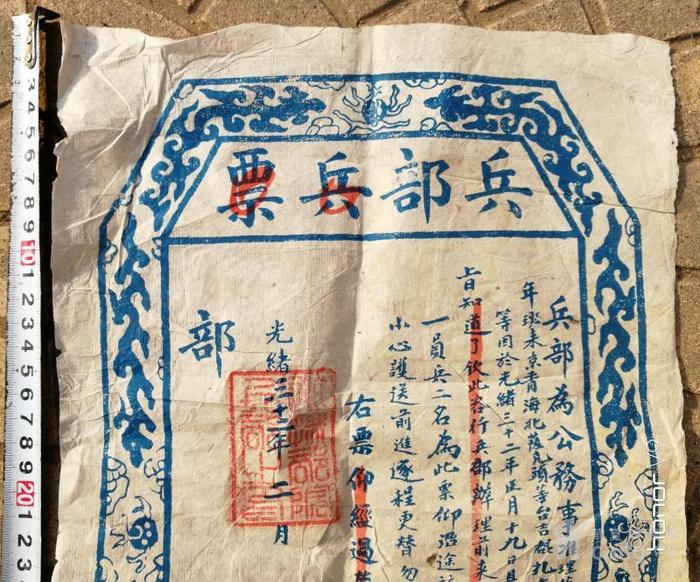 兵部兵票
兵部為公務事准理
年班來京青海北薩克頭等台吉
等因於光緒三十二年正月十九日
旨知道了欽此咨行兵部辦理前來
一員兵二名為此票仰沿途
小心護送前進逐程更替勿
右票仰經過
光緒三十二年二月
部
3 4 5 6 7 8 9 10 1 2 3 4 5 6 7 8 9 20 1 2 3
honor V9